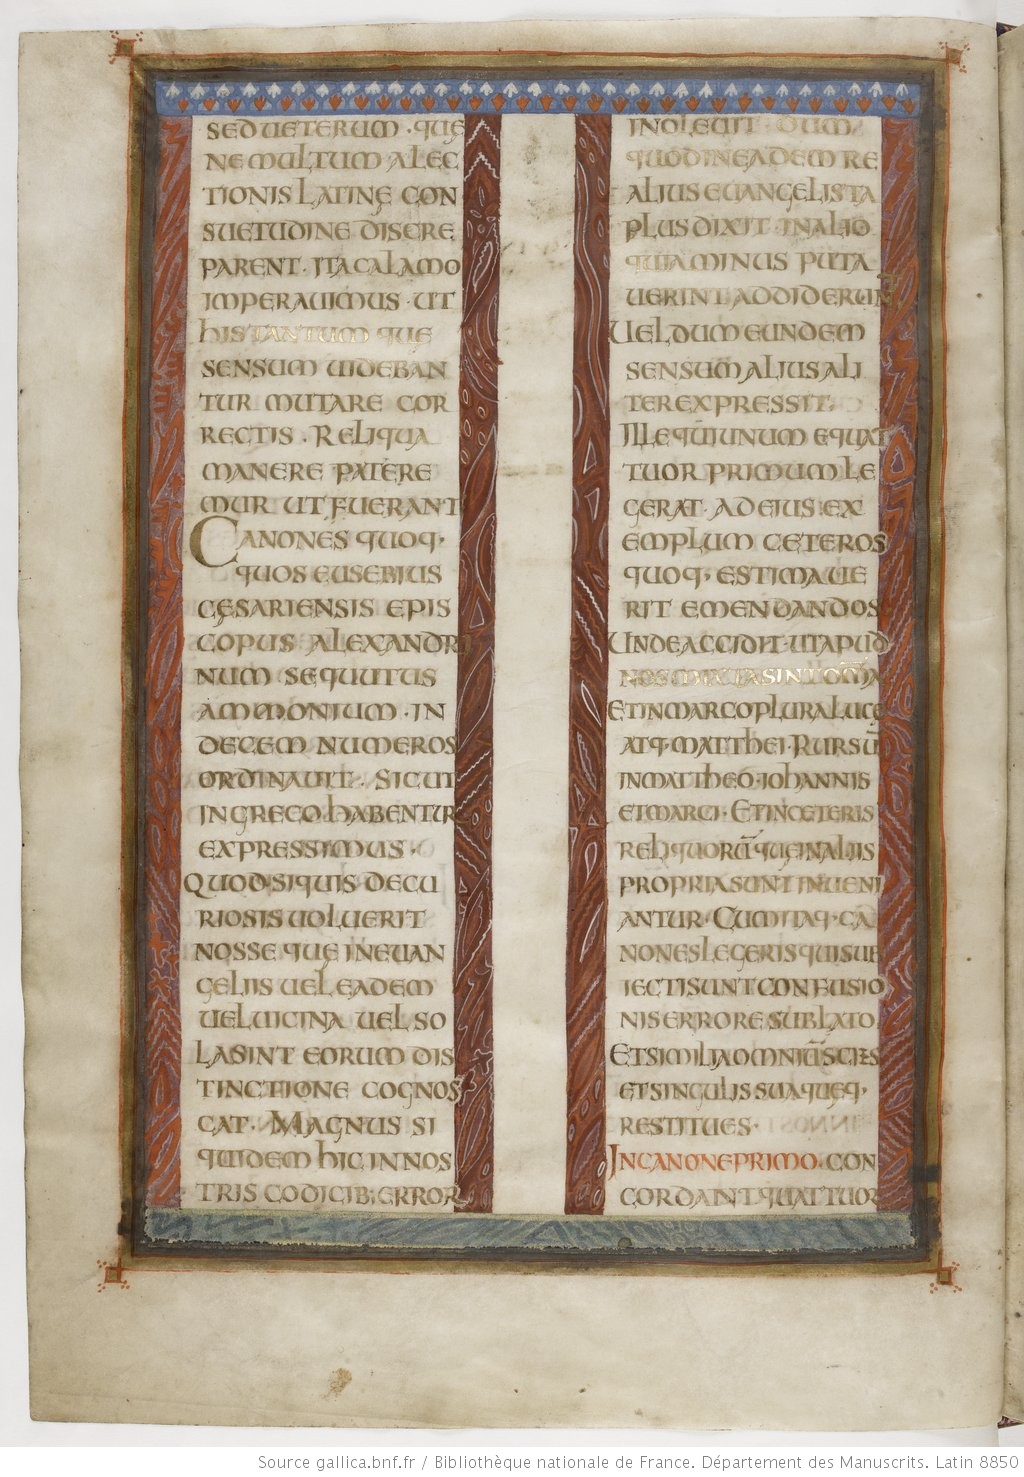 SED UETERUM · QUE
NE MULTUM A LEC
TIONIS LATINE CON
SUETUDINE DISCRE
PARENT · ITA CALAMO
IMPERAUIMUS · UT
HIS TANTUM QUE
SENSUM UIDEBAN
TUR MUTARE COR
RECTIS · RELIQUA
MANERE PATERE
MUR UT FUERANT
CANONES QUOQ·
QUOS EUSEBIUS
CESARIENSIS EPIS
COPUS ALEXANDRI
NUM SEQUUTUS
AMMONIUM · IN
DECEM NUMEROS
ORDINAUIT · SICUT
IN GRECO HABENTUR
EXPRESSIMUS ·
QUOD SI QUIS DE CU
RIOSIS UOLUERIT
NOSSE QUE IN EUAN
GELIIS UEL EADEM
UEL UICINA UEL SO
LA SINT EORUM DIS
TINCTIONE COGNOS
CAT · MAGNUS SI
QUIDEM HIC IN NOS
TRIS CODICIB; ERROR
INOLEUIT · DUM
QUOD IN EADEM RE
ALIUS EUANGELISTA
PLUS DIXIT · IN ALIO
QUIA MINUS PUTA
UERINT ADDIDERUNT
UEL DUM EUNDEM
SENSUM ALIUS ALI
TER EXPRESSIT ·
ILLE QUI UNUM E QUAT
TUOR PRIMUM LE
GERAT · AD EIUS EX
EMPLUM CETEROS
QUOQ· ESTIMAUE
RIT EMENDANDOS
UNDE ACCIDIT · UT APUD
NOS MIXTA SINT OMĪA
ET IN MARCO PLURA LUCE
ATQ· MATTHEI · RURSŪ
IN MATTHEO · IOHANNIS
ET MARCI · ET IN CETERIS
RELIQUORŪ QUE IN ALIIS
PROPRIA SUNT INUENI
ANTUR · CUM ITAQ· CA
NONES LEGERIS QUI SUB
IECTI SUNT CONFUSIO
NIS ERRORE SUBLATO
ET SIMILIA OMNIŪ SCIES
ET SINGULIS SUA QUEQ·
RESTITUES ·
IN CANONE PRIMO · CON
CORDANT QUATTUOR
Source gallica.bnf.fr / Bibliothèque nationale de France. Département des Manuscrits. Latin 8850